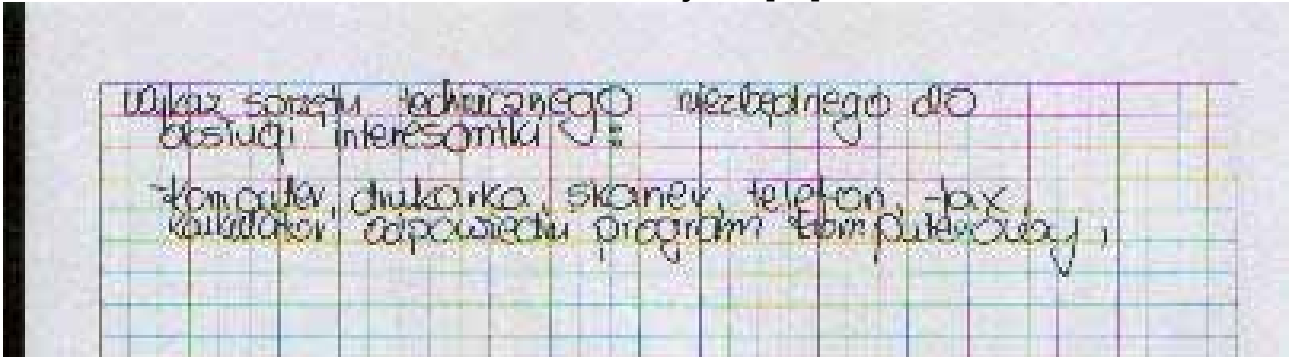 Wykaz sprzętu technicznego niezbędnego do
obsługi interesantki :
komputer, drukarka, skaner, telefon, fax,
kalkulator, odpowiedni program komputerowy,